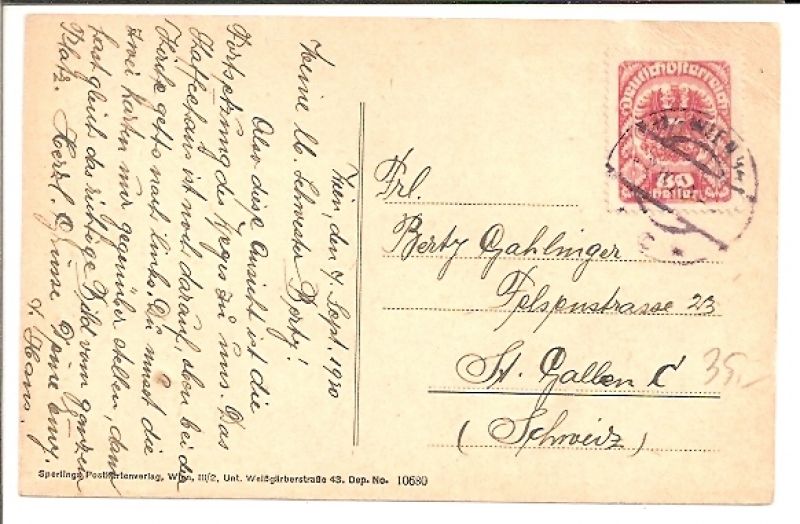 Wien, den 7. Sept. 1920
Meine lb. Schwester Berty!
Also diese Ansicht ist die
Fortsetzung des Weges zu uns. Das
Kaffeehaus ist noch darauf, eben bei der
Kirche gehts nach links. Du musst die
zwei Karten nur gegenüber stellen, dann
hast gleich das richtige Bild vom ganzen
Platz. Herzl. Grüsse Deine
v. Hans.
Deutschösterreich
80
Heller
WIEN
Frl.
Berty Gahlinger
Felsenstrasse 23
St. Gallen C
(Schweiz)
35.-
Sperlings Postkartenverlag, Wien, III/2, Unt. Weißgärberstraße 43. Dep. No. 10680